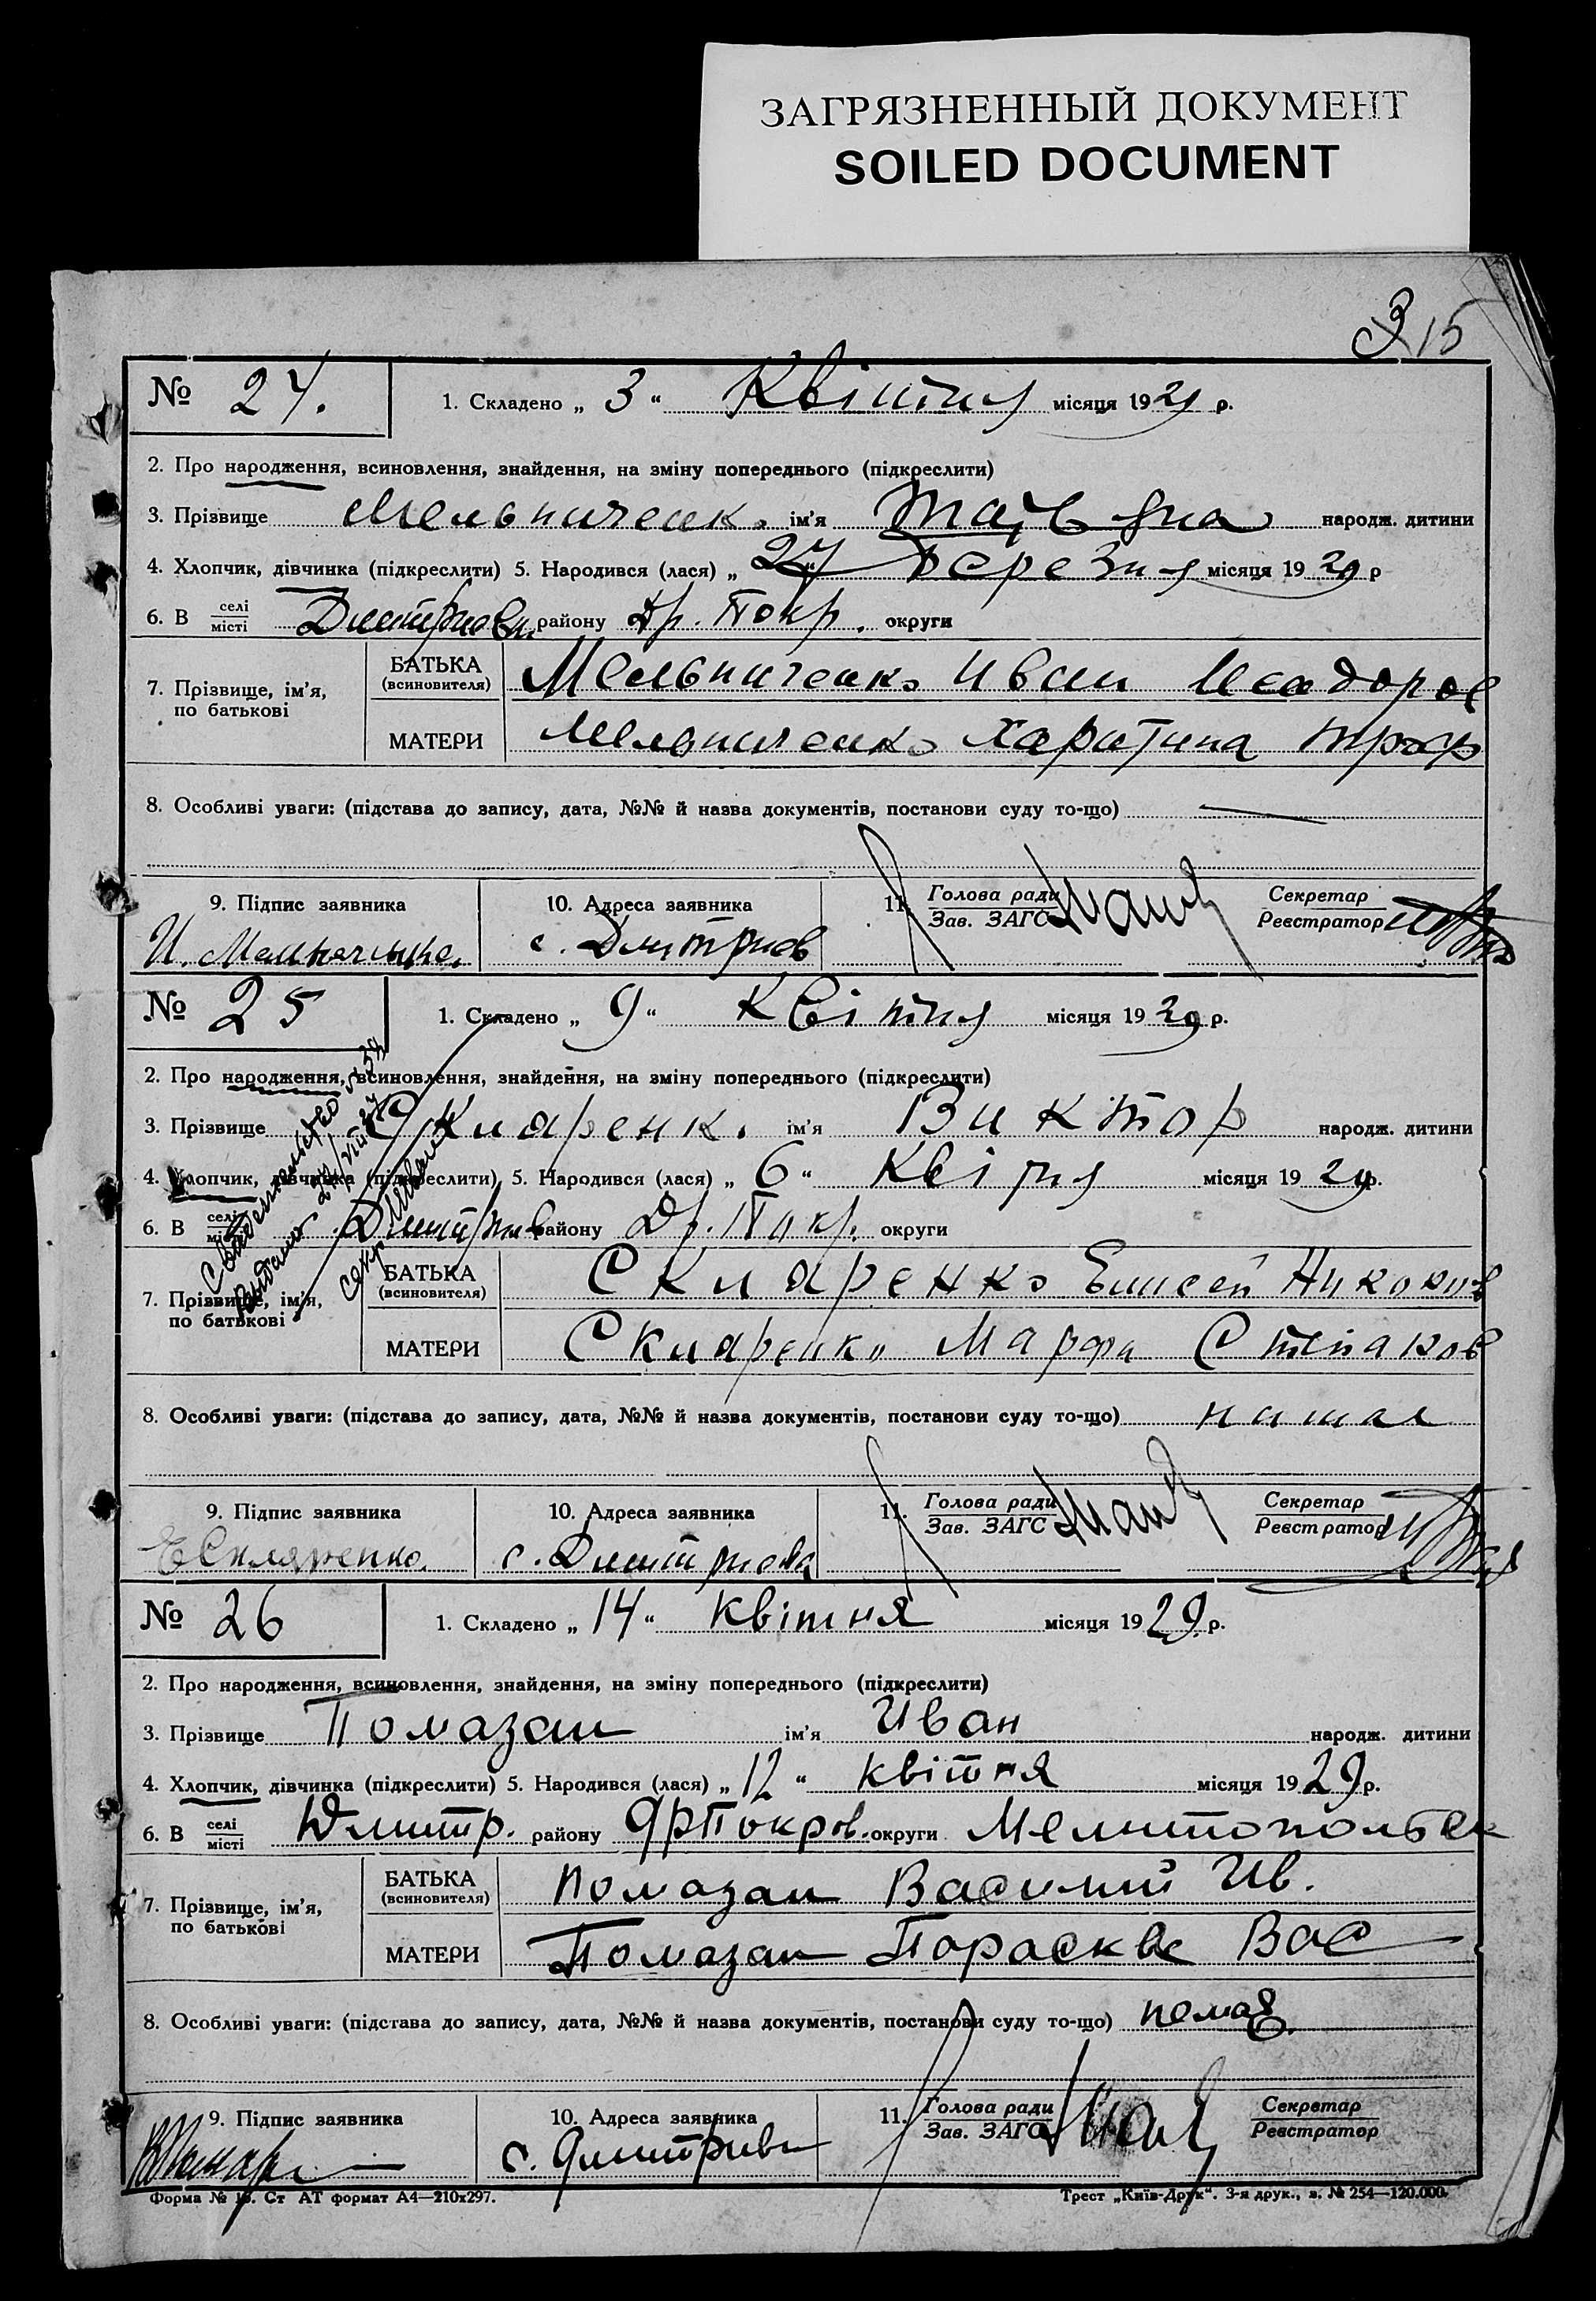 ЗАГРЯЗНЕННЫЙ ДОКУМЕНТ
SOILED DOCUMENT
15
№ 24. 1. Складено „ 3 “ Квітня місяця 1929 р.
2. Про народження, всиновлення, знайдення, на зміну попереднього (підкреслити)
3. Прізвище Мельниченко ім'я народж. дитини
4. Хлопчик, дівчинка (підкреслити) 5. Народився (лася) „ 27 “ Березня місяця 1929 р
6. В селі місті району Др. Покр. округи
7. Прізвище, ім'я, по батькові
БАТЬКА (всиновителя) Мельниченко Иван
МАТЕРИ Мельниченко Харитина
8. Особливі уваги: (підстава до запису, дата, №№ й назва документів, постанови суду то-що) —
9. Підпис заявника 10. Адреса заявника 11. Голова ради Зав. ЗАГС Секретар Реєстратор
И. с. Дмитриев
№ 25 1. Складено „ 9 “ Квітня місяця 1929 р.
2. Про народження, всиновлення, знайдення, на зміну попереднього (підкреслити)
3. Прізвище Скляренко ім'я Виктор народж. дитини
4. Хлопчик, дівчинка (підкреслити) 5. Народився (лася) „ 6 “ Квітня місяця 1929 р.
6. В селі місті району Др. Покр. округи
7. Прізвище, ім'я, по батькові
БАТЬКА (всиновителя) Скляренко Елисей
МАТЕРИ Скляренко Марфа Степанов
8. Особливі уваги: (підстава до запису, дата, №№ й назва документів, постанови суду то-що)
9. Підпис заявника 10. Адреса заявника 11. Голова ради Зав. ЗАГС Секретар Реєстратор
Е Скляренко. с. Дмитриевка
№ 26 1. Складено „ 14 “ квітня місяця 1929 р.
2. Про народження, всиновлення, знайдення, на зміну попереднього (підкреслити)
3. Прізвище Помазан ім'я Иван народж. дитини
4. Хлопчик, дівчинка (підкреслити) 5. Народився (лася) „ 12 “ квітня місяця 1929 р.
6. В селі місті Дмитр. району ДрПокров. округи Мелитопольск
7. Прізвище, ім'я, по батькові
БАТЬКА (всиновителя) Помазан Василий Ив.
МАТЕРИ Помазан Параскве Вас
8. Особливі уваги: (підстава до запису, дата, №№ й назва документів, постанови суду то-що) немає.
9. Підпис заявника 10. Адреса заявника 11. Голова ради Зав. ЗАГС Секретар Реєстратор
с. Дмитривк
Форма № 16. Ст АТ формат А4—210х297. Трест „Київ-Друк“. 3-я друк., з. № 254—120.000.